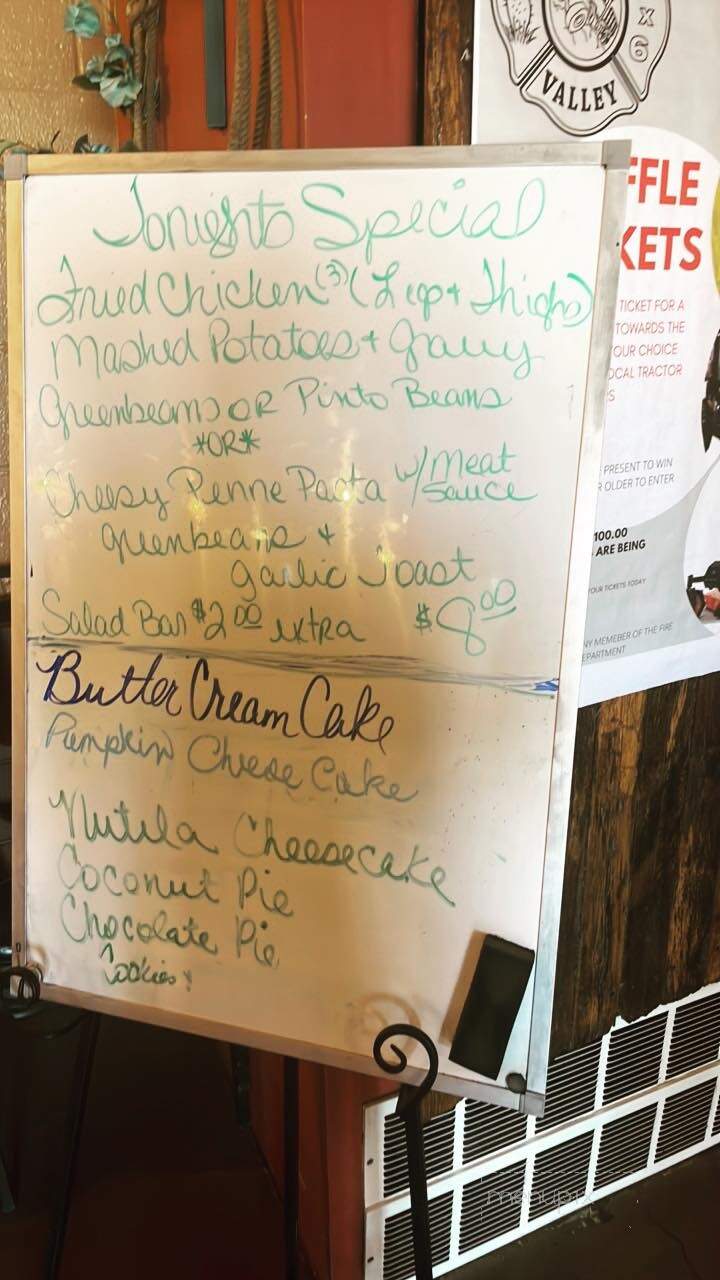 Tonights Special
Fried Chicken (3) (Leg + Thighs)
Mashed Potatoes + Gravy
Greenbeans OR Pinto Beans
*OR*
Cheesy Penne Pasta w/ Meat Sauce
greenbeans +
garlic Toast
Salad Bar $2.00 extra $8.00
Butter Cream Cake
Pumpkin Cheese Cake
Nutella Cheesecake
Coconut Pie
Chocolate Pie
Cookies
VALLEY
X
6
FFLE
KETS
TICKET FOR A
TOWARDS THE
OUR CHOICE
OCAL TRACTOR
S
PRESENT TO WIN
R OLDER TO ENTER
100.00
ARE BEING
YOUR TICKETS TODAY
NY MEMEBER OF THE FIRE
EPARTMENT
menupix